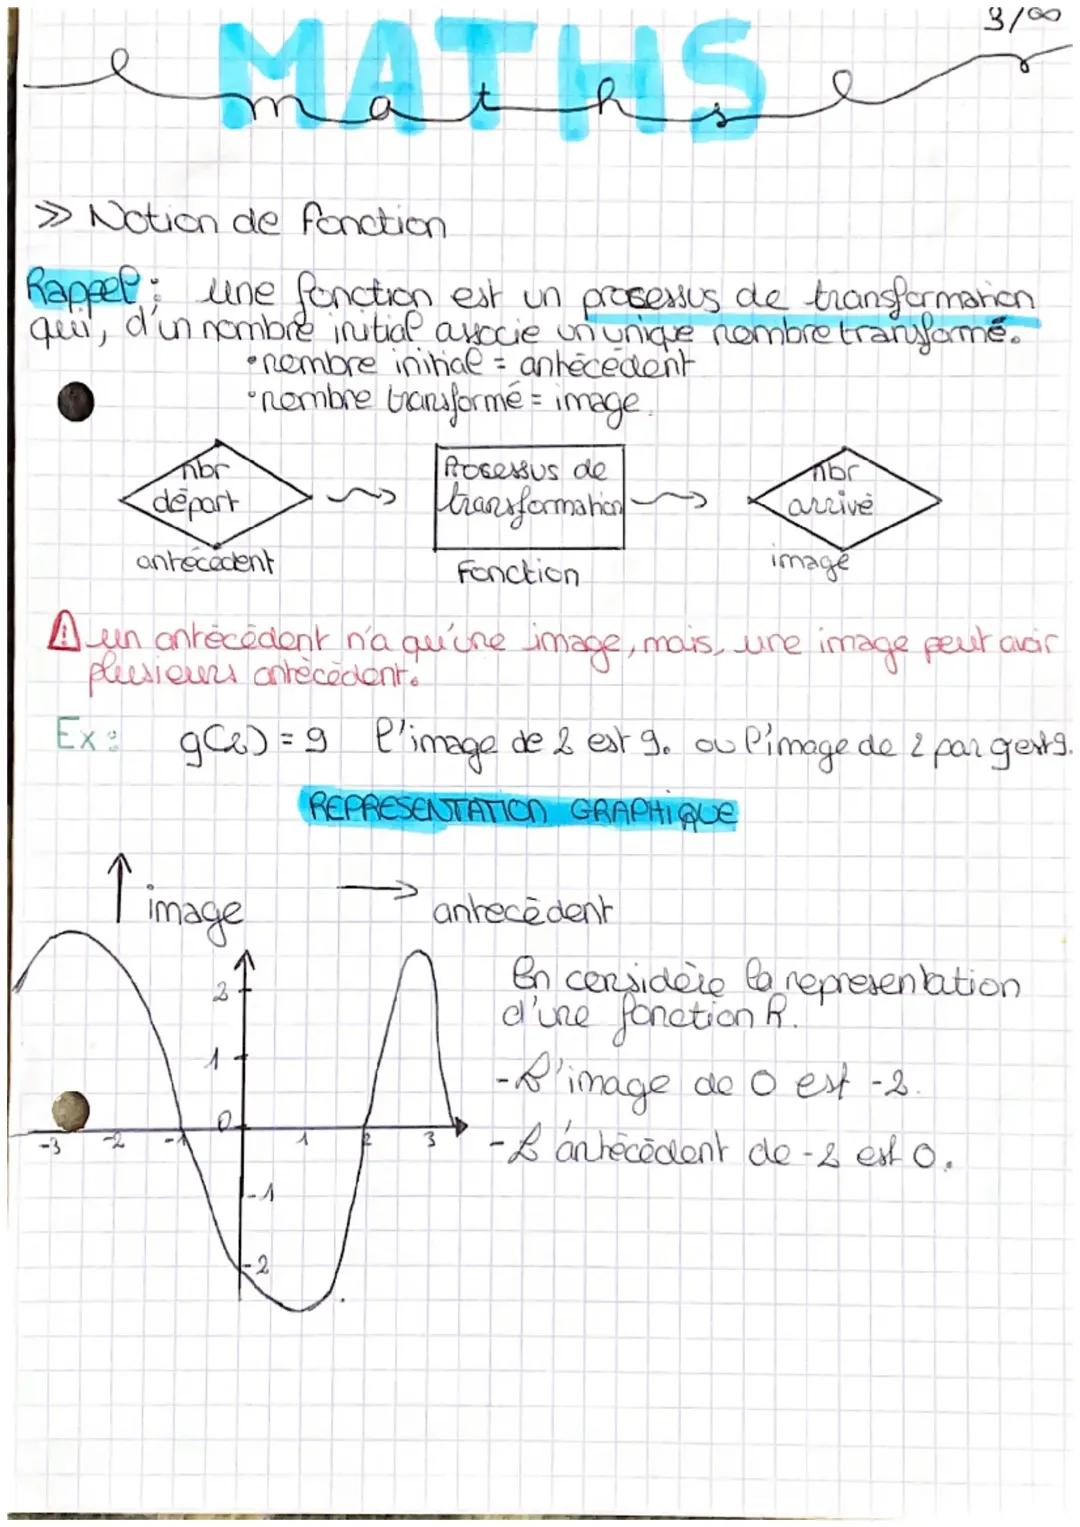 3/∞
MATHS
maths
>> Notion de fonction
Rappel : une fonction est un processus de transformation
qui, d'un nombre initial associe un unique nombre transformé.
•nombre initial = antécédent
•nombre transformé = image.
nbr
départ
antécédent
Processus de
transformation
Fonction
nbr
arrivé
image
⚠ un antécédent n'a qu'une image, mais, une image peut avoir
plusieurs antécédent.
Ex : g(2) = 9 l'image de 2 est 9. ou l'image de 2 par g est 9.
REPRESENTATION GRAPHIQUE
↑ image → antecédent
En considère la representation
d'une fonction h.
- L'image de 0 est -2.
- L'antécédent de -2 est 0.
2
1
0
-3 -2 -1 1 2 3
-1
-2